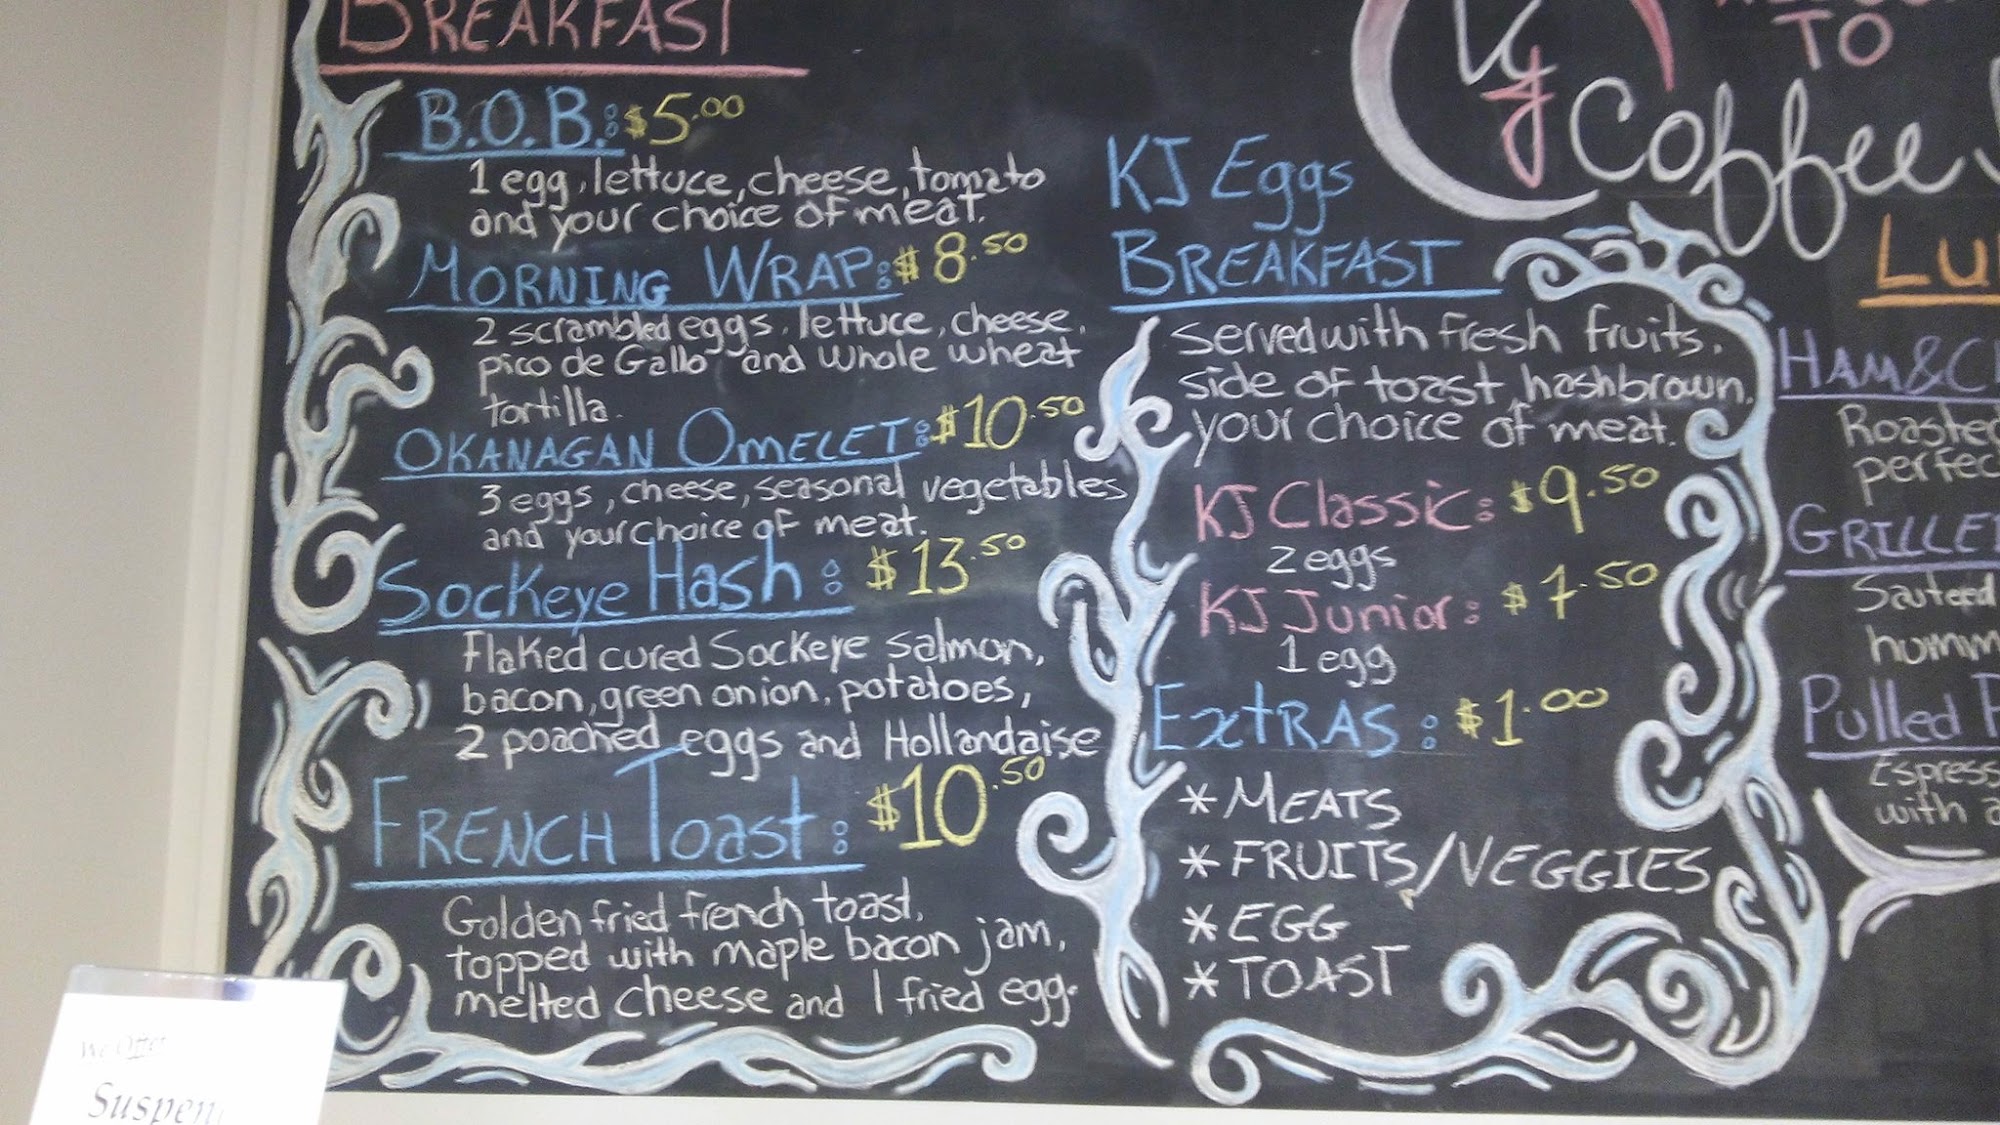 BREAKFAST
B.O.B.: $5.00
1 egg, lettuce, cheese, tomato
and your choice of meat.
MORNING WRAP: $8.50
2 scrambled eggs, lettuce, cheese,
pico de Gallo and whole wheat
tortilla.
OKANAGAN OMELET: $10.50
3 eggs, cheese, seasonal vegetables
and your choice of meat.
Sockeye Hash: $13.50
Flaked cured Sockeye salmon,
bacon, green onion, potatoes,
2 poached eggs and Hollandaise
FRENCH Toast: $10.50
Golden fried french toast,
topped with maple bacon jam,
melted cheese and 1 fried egg.
KJ Eggs
BREAKFAST
served with fresh fruits,
side of toast, hashbrown,
your choice of meat.
KJ Classic: $9.50
2 eggs
KJ Junior: $7.50
1 egg
EXTRAS: $1.00
* MEATS
* FRUITS/VEGGIES
* EGG
* TOAST
TO
KJ Coffee
HAM & C
Roasted
Sauteed
Pulled P
with a
We Offer